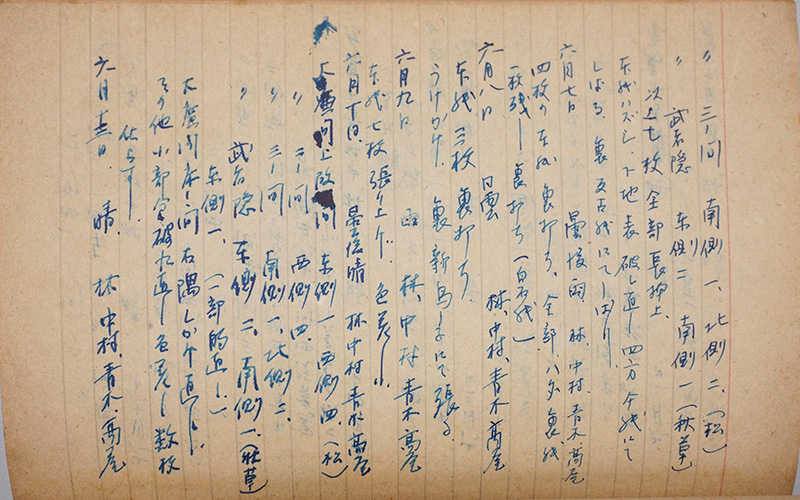 〃 三ノ間 南側一、北側二、(松)
〃 武者隠 东側二 南側一(秋草)
以上七枚 全部長押上、
本紙ハズシ、下地表破レ直シ四方今紙にて
しばる、裏反古紙にてしぼり
六月七日 曇後雨、林、中村、青木、高屋
四枚の本紙裏打ち、全部八分裏紙
一枚残し裏打ち(白石紙)
六月八日 日雲 林、中村、青木、高屋
本紙三枚裏打ち、
うけかけ、裏新鳥ノ子にて張る
六月九日 雨 林、中村、青木、高屋
本紙七枚張り上げ、色差し、
六月十日、曇後晴 林 中村 青木 高屋
大廣間上段ノ間 东側一 西側四、(松)
〃 二ノ間 西側四、
〃 三ノ間 南側一、北側二、
〃 武者隠 东側二、南側一、(秋草)
东側一、(一部的直し)
大廣間床ノ間右隅しかけ直し、
その他小部分破れ直し色差し数枚
仕上げ、
六月十三日、晴、林 中村、青木、高屋